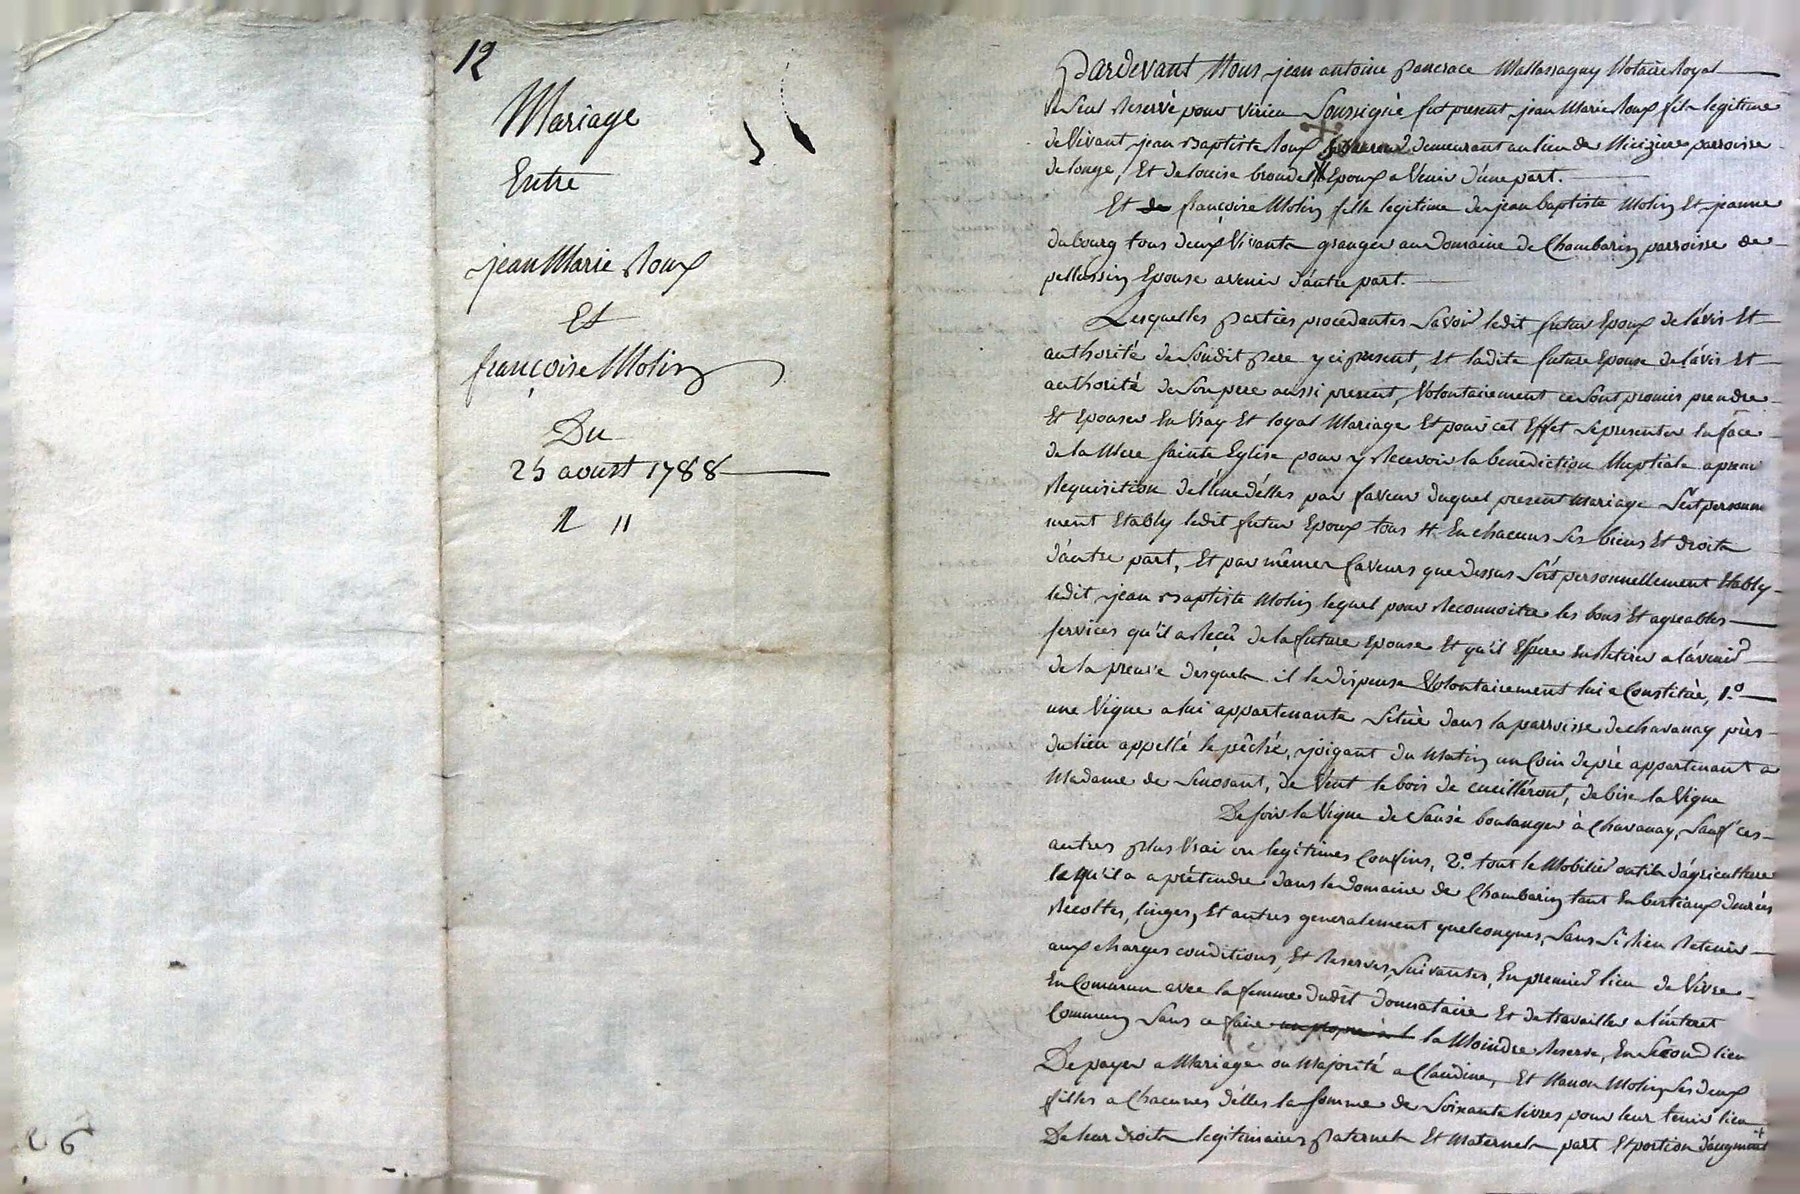 12
Mariage
Entre
jean Marie Roux
Et
françoise Molin
Du
25 aoust 1788
11
26
Pardevant Nous jean antoine pancrace Mallassagny Notaire Royal
Reservé pour Virieu Soussigné fut present jean Marie Roux fils legitime
de Vivant jean Baptiste Roux demeurant au lieu de parroisse
de longe, Et de louise Epoux a Venir d'une part.
Et françoise Molin fille legitime de jean baptiste Molin Et jeanne
dubourg tous deux Vivants granger au Domaine de Chambarin parroisse de
pellussin Epouse avenir d'autre part.
Lesquelles parties procedantes Savoir ledit futur Epoux de l'avis Et
authorité de Sondit pere y ci present, Et ladite future Epouse de l'avis Et
authorité de Son pere aussi present, Volontairement ce Sont promis prendre
Et Epouser En Vray Et loyal Mariage Et pour cet Effet Se presenter En face
de la Mere Sainte Eglise pour y Recevoir la benediction Nuptiale a premiere
Requisition de l'une d'elles par faveur duquel present Mariage S'est personnelle
ment Etably ledit futur Epoux tous Et En chacuns Ses biens Et droits
d'autre part, Et par mêmes faveurs que dessus S'est personnellement Etably
ledit jean Baptiste Molin lequel pour Reconnoitre les bons Et agreables
Services qu'il a Reçû de la future Epouse Et qu'il Espere En Retirer a l'avenir
de la preuve desquels il la dispense Volontairement lui a Constitué, 1.º
une Vigne a lui appartenante Situé dans la parroisse de chavanay près
du lieu appellé le pêché, joigant du Matin un Coin de pré appartenant a
Madame de Senosant, de Vent le bois de cueilléront, de bise la Vigne
De Soir la Vigne de Sausé boulanger à Chavanay, Sauf ces
autres plus Vrai ou legitimes Confins, 2.º tout le Mobilier outils d'agriculture
Ce qu'il a a prétendre dans le Domaine de Chambarin tant En bestiaux denrées
Recoltes, linges, Et autres generalement quelconques, Sans Si Rien Retenir
aux charges conditions, Et Reserves Suivantes, En premier lieu de Vivre
En Commun avec la femme dudit donnataire Et de travailler a l'interet
Commun Sans a faire la Moindre Reserve, En Second lieu
De payer a Mariage ou Majorité a Claudine, Et Manon Molin Ses deux
filles a Chacunes d'elles la Somme de Soixante livres pour leur tenir lieu
De leur droits legitimaires paternels Et Maternels part Et portion d'augment